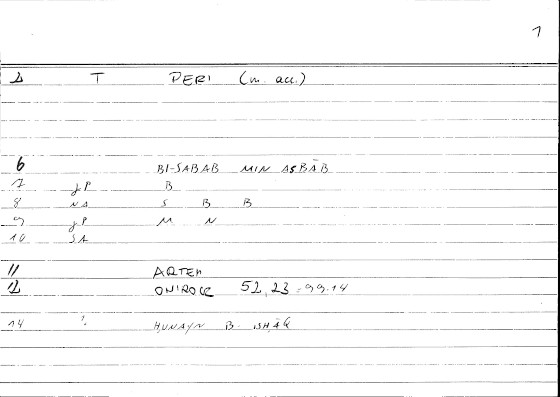 1
1 T PERI (m. acc.)
6 BI-SABAB MIN ASBĀB
7 gP B
8 NA S B B
9 gP M N
10 SA
11 ARTEM
12 ONIROCR 52,23 = 99.14
14 ? HUNAYN B. ISHĀQ